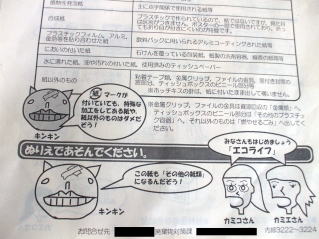 合成紙
プラスチックで作られているので、紙ではないですが、見た目
プラスチックフィルム、アルミ、
金箔等を貼り合わせた紙
飲料パックに用いられるアルミコーティングされた紙等
においの付いた紙
石けんを覆っている包装紙、紙製の洗剤容器、線香の紙箱等
水に溶けた紙、汚れた紙等
生ゴミや油が付いた紙、使用済みのティッシュペーパー
紙以外のもの
粘着テープ類、金属クリップ、ファイルの金具、
ティッシュボックスのビニール部分等
※ホッチキスの針は、紙に付いたまま出して構いません。
※金属クリップ、ファイルの金具は資源回収の「金属類」へ
ティッシュボックスのビニール部分は「その他のプラスチッ
ク容器」へ、それ以外のものは「燃やせるごみ」へ出してく
ださい。
紙 マークが
付いていても、特殊な
加工をしてある紙や
紙以外のものはダメだ
ぞう！
キンキン
ぬりえであそんでください。
この紙も「その他の紙類」
になるんだぞう！
キンキン
みなさんもはじめましょう
「エコライフ」
カミコさん
カミオさん
お問合せ先
廃棄物対策課
内線3222～3224